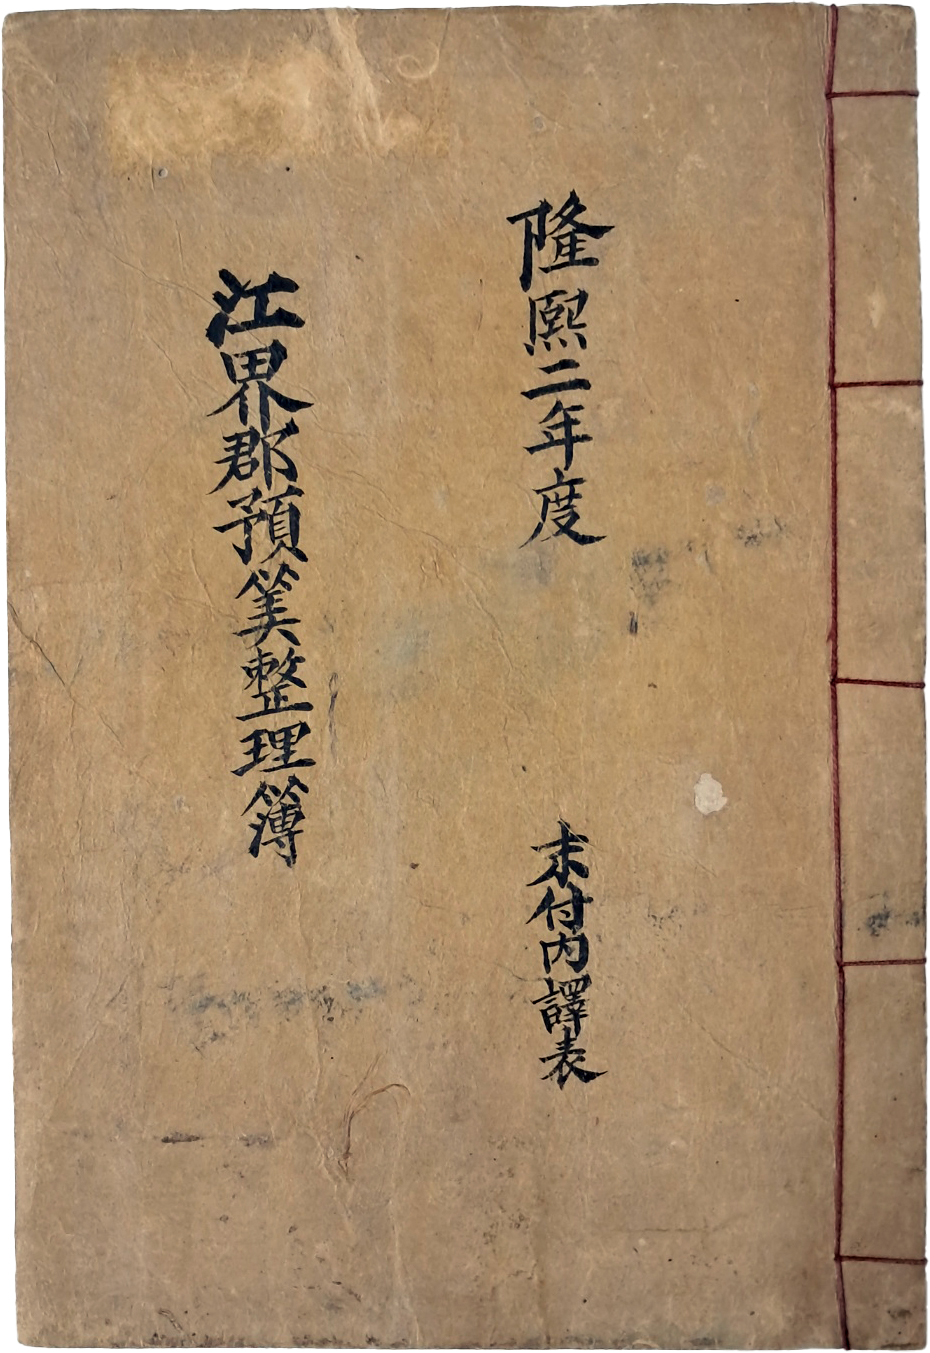 隆熙二年度
末付内譯表
江界郡預筭整理簿